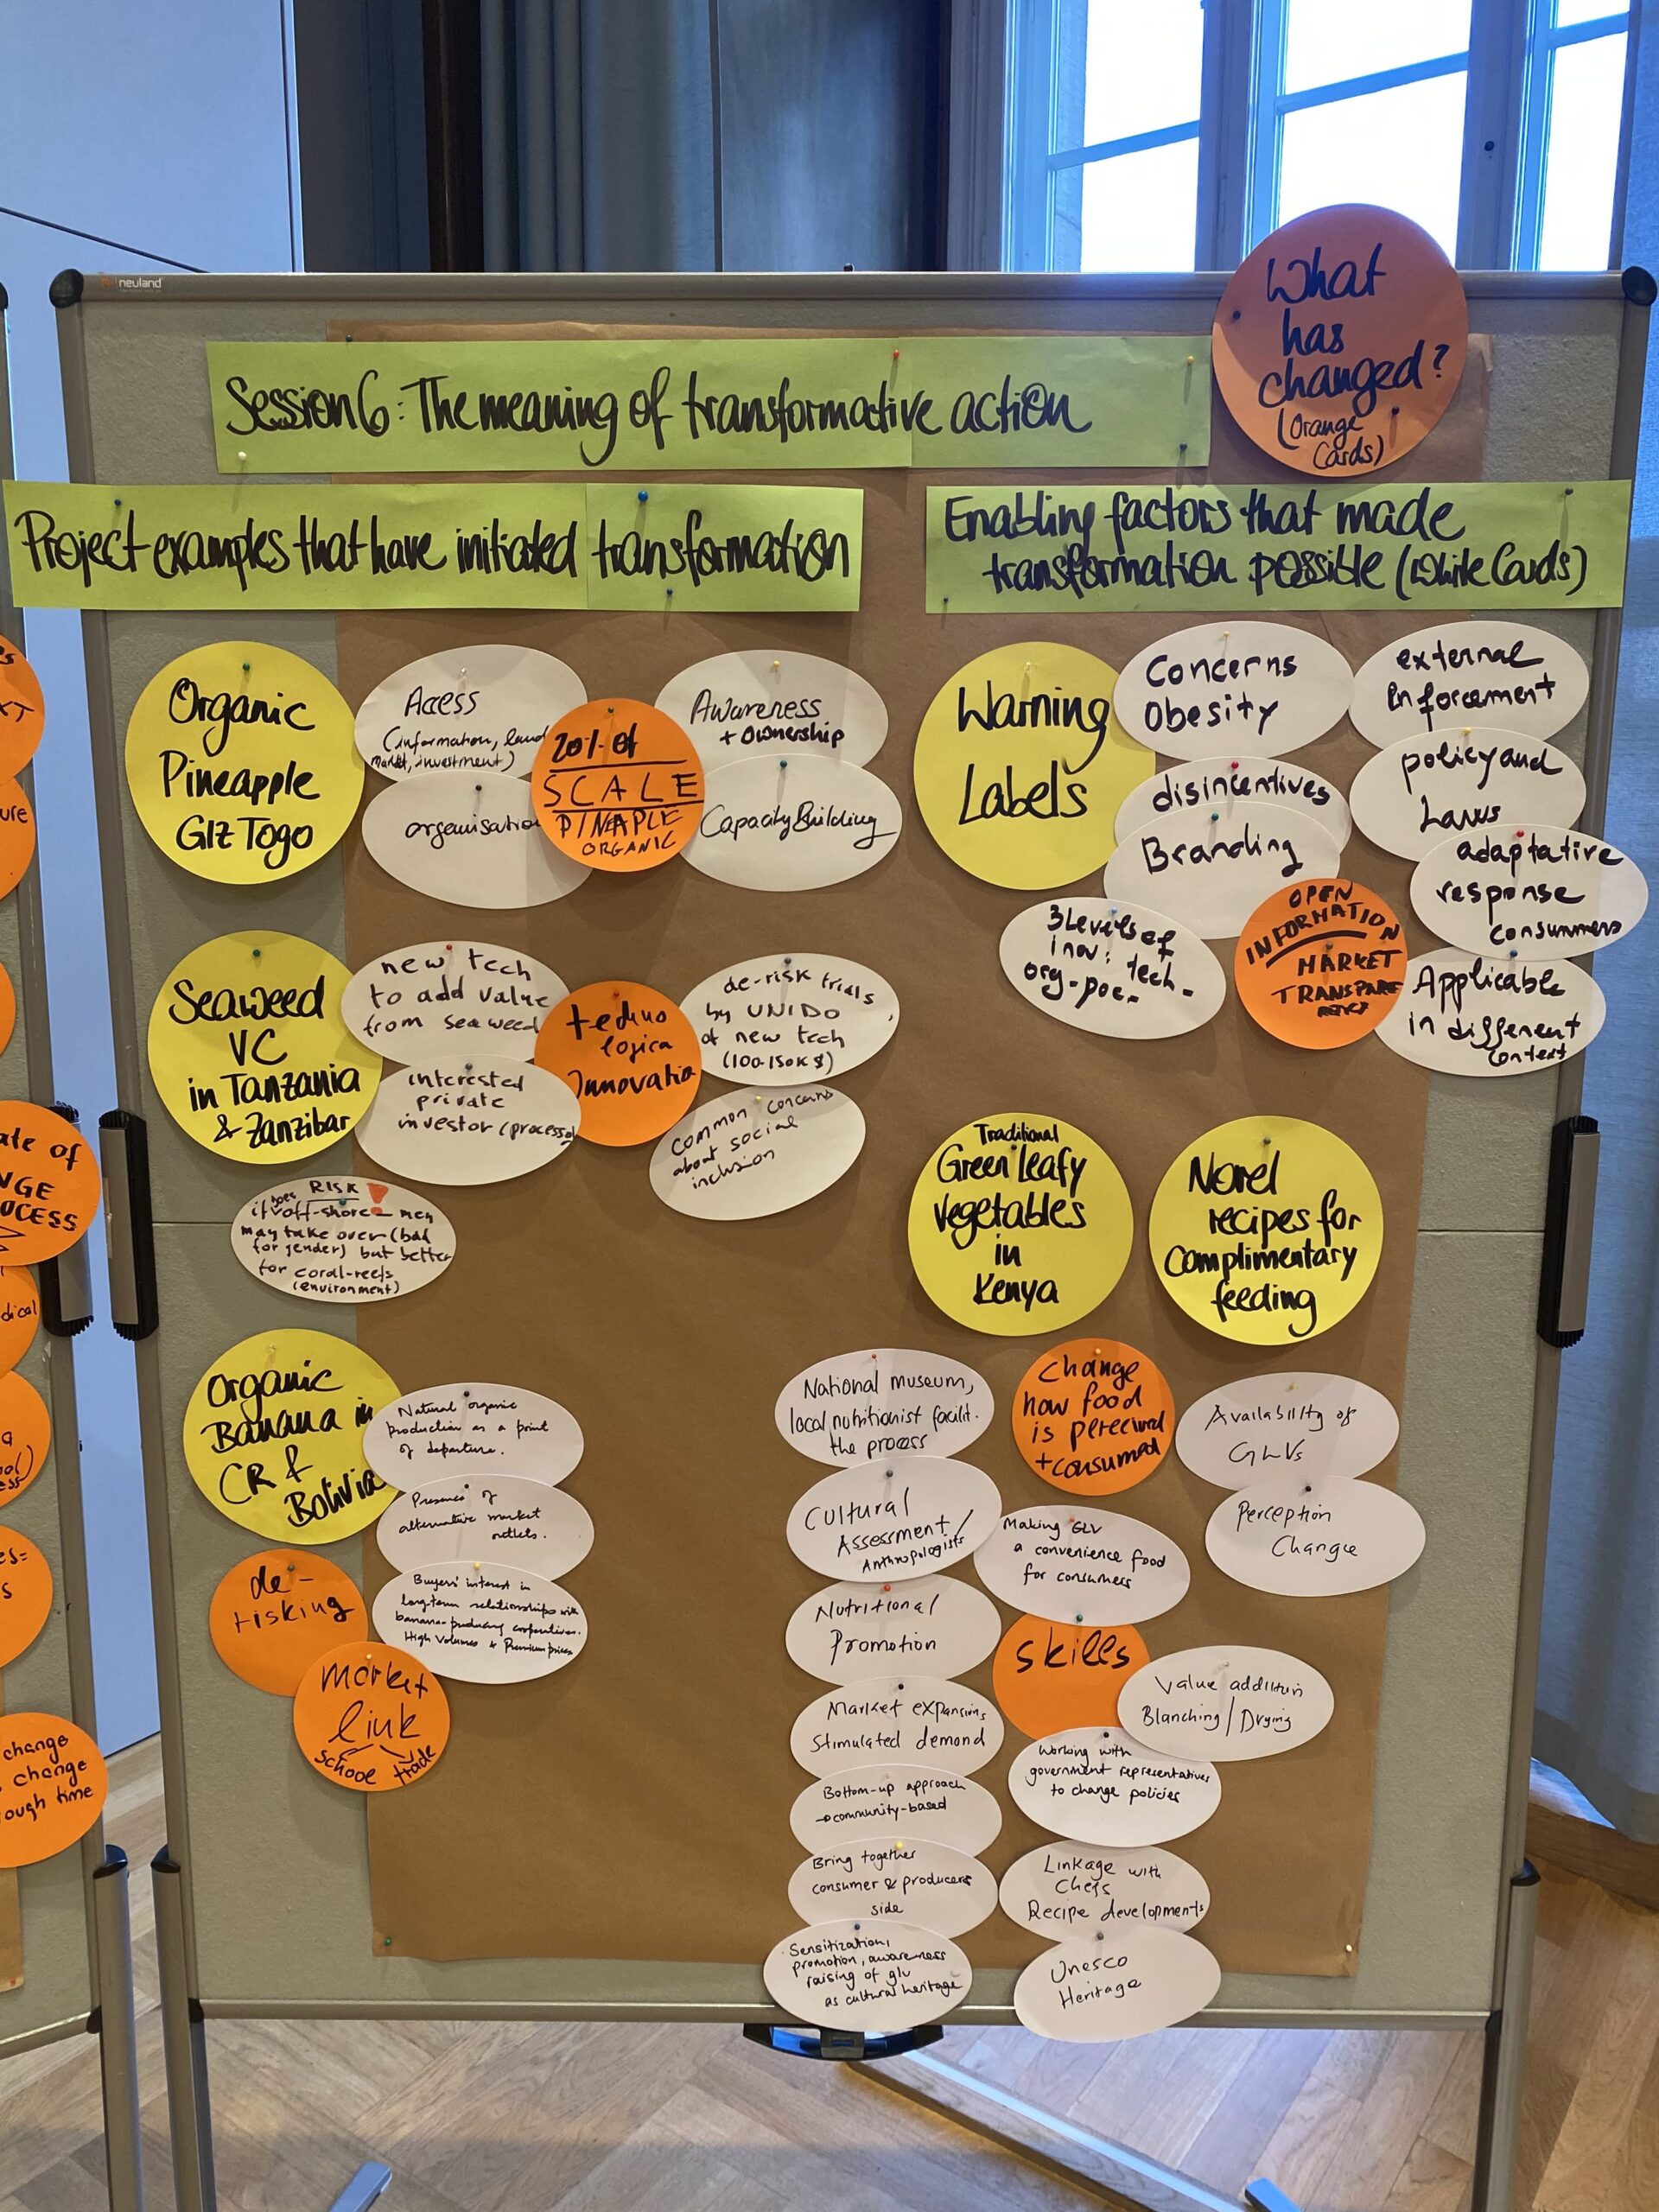 neuland
What
has
changed?
(Orange
Cards)
Session 6: The meaning of transformative action
Project examples that have initiated transformation
Enabling factors that made
transformation possible (White Cards)
Organic
Pineapple
GIZ Togo
Access
(information, land
market, investment)
organisation
20% of
SCALE
PINAPLE
ORGANIC
Awareness
+ Ownership
Capacity Building
Warning
Labels
Concerns
Obesity
external
Enforcement
disincentives
Branding
policy and
Laws
adaptative
response
consummers
3 Levels of
inov: tech-
org-poc-
OPEN
INFORMATION
MARKET
TRANSPARE
Applicable
in different
Context
Seaweed
VC
in Tanzania
& Zanzibar
new tech
to add value
from seaweed
interested
private
investor (processo
techno
logica
Innovatio
de-risk trials
by UNIDO
of new tech
(100-150K$)
Common concerns
about social
inclusion
RISK !
if does off-shore men
may take over (bad
for gender) but better
for coral-reefs
(environment)
Traditional
Green leafy
Vegetables
in
Kenya
Novel
recipes for
Complimentary
feeding
Organic
Banana in
CR &
Bolivia
Natural organic
production as a point
of departure.
Presence of
alternative market
outlets.
Buyers' interest in
long-term relationships with
banana-producing cooperatives.
High Volumes + Premium prices
de-
risking
market
link
trade
National museum,
local nutritionist facilit.
the process
Cultural
Assessment/
Anthropologists
Nutritional
Promotion
Market expansions
Stimulated demand
Bottom-up approach
→ community-based
Bring together
consumer & producers
side
Sensitization,
promotion, awareness
raising of glv
as cultural heritage
Change
how food
is perceived
+ consumed
Availability of
GLVs
Perception
Change
Making GLV
a convenience food
for consumers
skills
Value addition
Blanching/Drying
Working with
government representatives
to change policies
Linkage with
Chefs
Recipe developments
Unesco
Heritage
ure
ate of
NGE
OCESS
dical
change
change
ough time